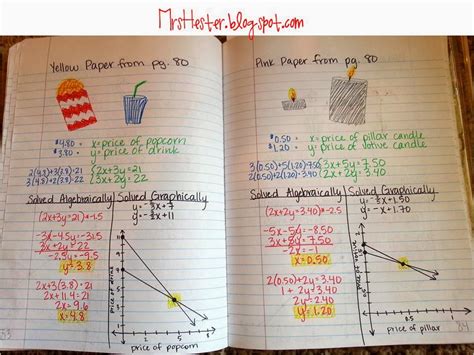 MrsHester.blogspot.com
Yellow Paper from pg. 80
$4.80 = x=price of popcorn
$3.80 = y=price of drink
2(4.80)+3(3.80)=21 {2x+3y=21
3(4.80)+2(3.80)=22 {3x+2y=22
Solved Algebraically
(2x+3y=21)•-1.5
-3x-4.5y=-31.5
3x+2y=22
-2.5y=-9.5
y=3.8
2x+3(3.8)=21
2x+11.4=21
2x=9.6
x=4.8
Solved Graphically
y=-⅔x+7
y=-3/2x+11
price of drink
price of popcorn
Pink Paper from pg. 80
$0.50 = x=price of pillar candle
$1.20 = y=price of votive candle
3(0.50)+5(1.20)=7.50 {3x+5y=7.50
2(0.50)+2(1.20)=3.40 {2x+2y=3.40
Solved Algebraically
(2x+2y=3.40)•-2.5
-5x-5y=-8.50
3x+5y=7.50
x=0.50
2(0.50)+2y=3.40
1+2y=3.40
2y=2.40
y=1.20
Solved Graphically
y=-x+1.70
price of pillar